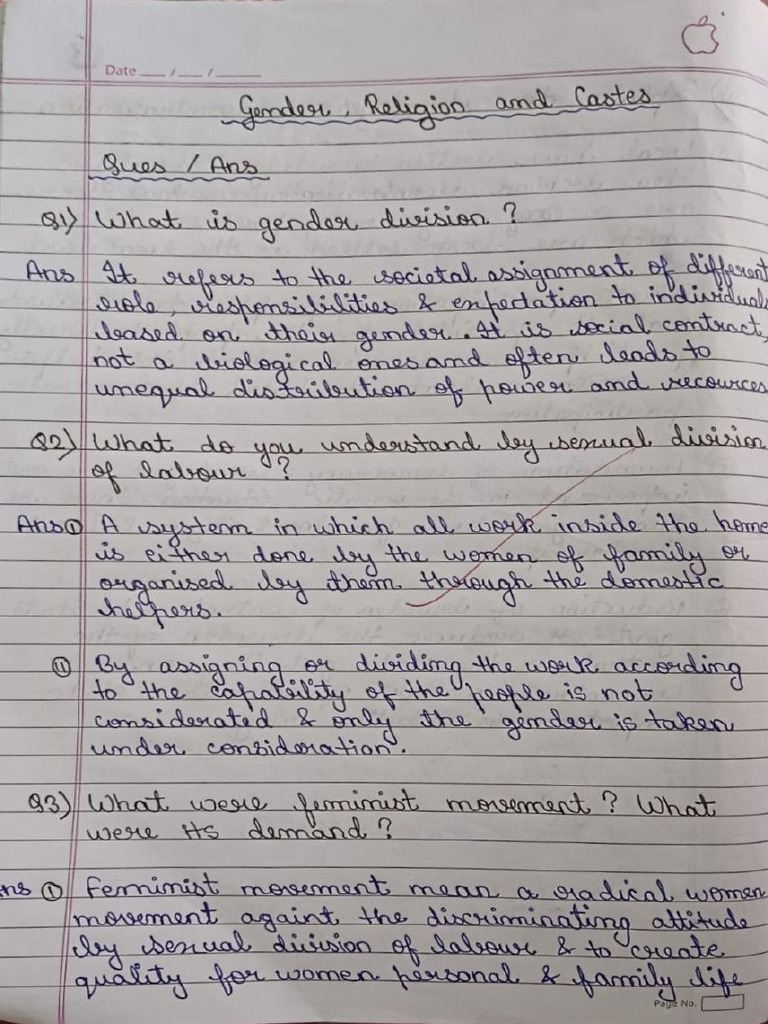 Date __/__/____
Gender, Religion and Castes
Ques / Ans
Q1) What is gender division ?
Ans It refers to the societal assignment of different
role, responsibilities & expectation to individual
based on their gender. It is social contract,
not a biological ones and often leads to
unequal distribution of power and recources
Q2) What do you understand by sexual division
of labour ?
Ans ① A system in which all work inside the home
is either done by the women of family or
organised by them through the domestic
helpers.
⑪ By assigning or dividing the work according
to the capability of the people is not
considerated & only the gender is taken
under consideration.
Q3) What were feminist movement ? What
were its demand ?
Ans ① Feminist movement mean a radical women
movement againt the discriminating attitude
by sexual division of labour & to create
quality for women personal & family life
Page No.